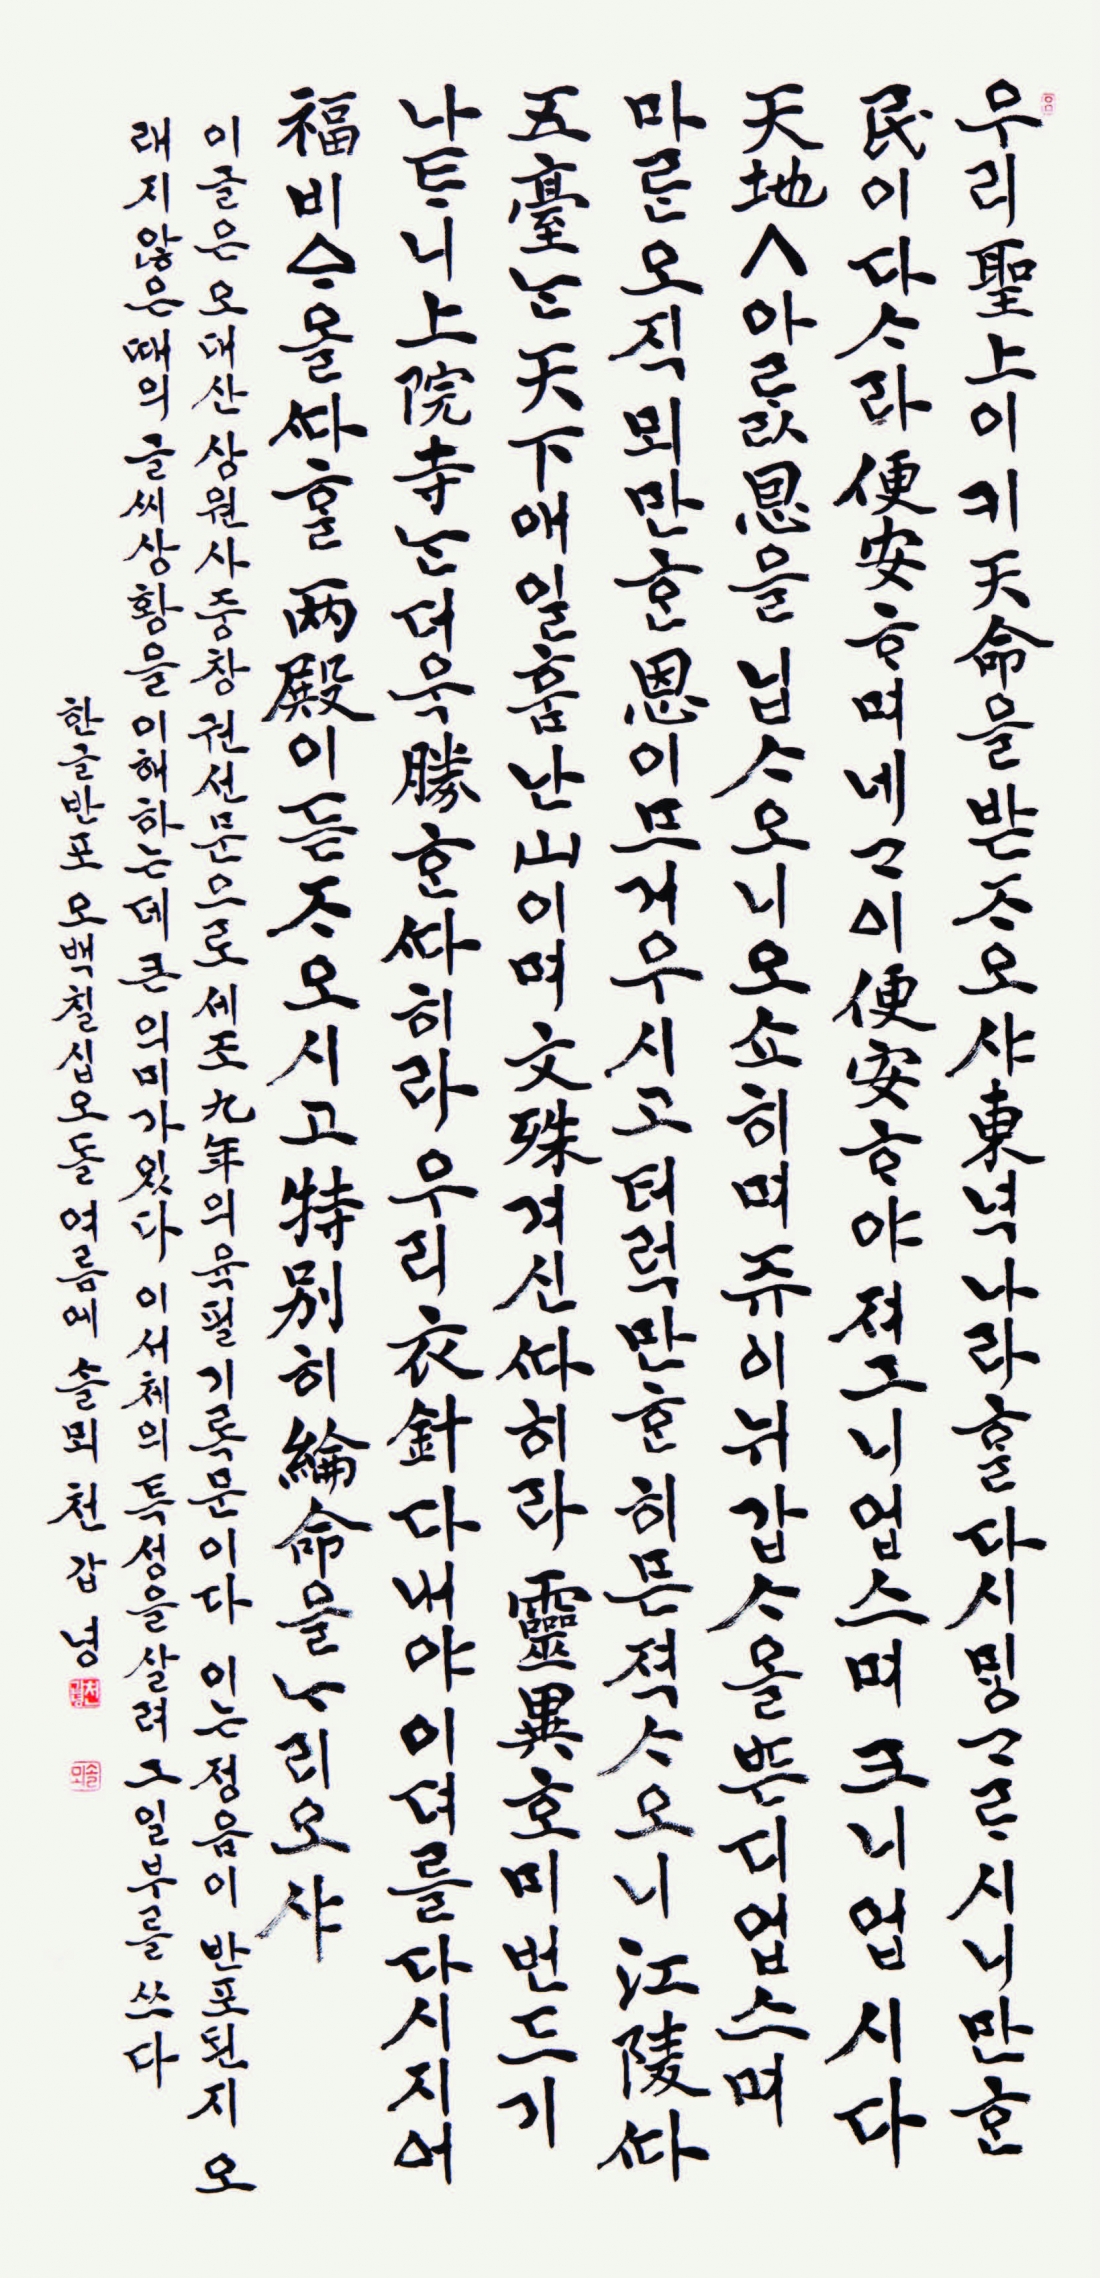 우리聖上이키天命을받ᄌᆞ오샤東녁나라ᄒᆞᆯ다시밍ᄀᆞᄅᆞ시니만ᄒᆞᆫ
民이다ᄉᆞ라便安ᄒᆞ며네ᄀᆞᅀᅵ便安ᄒᆞ야져그니업스며크니업시다
天地ㅅ恩을닙ᄉᆞ오니오쇼히며쥬이뉘갑ᄉᆞ올ᄠᅳ디업스며
마ᄅᆞᆫ오직뫼만ᄒᆞᆫ恩이므거우시고터럭만ᄒᆞᆫ히믄젹ᄉᆞ오니江陵ᄯᅡ
五臺ᄂᆞᆫ天下애일훔난山이며文殊겨신ᄯᅡ히라靈異호미번드기
나ᄐᆞ니上院寺ᄂᆞᆫ더욱勝ᄒᆞᆫᄯᅡ히라우리衣針다내야이뎌를다시지어
福비ᅀᆞ올ᄯᅡᄒᆞᆯ兩殿이듣ᄌᆞ오시고特別히綸命을ᄂᆞ리오샤
이글은오대산상원사중창권선문으로세조九年의육필기록문이다 이는정음이반포된지오
래지않은때의글씨상황을이해하는데큰의미가있다 이서체의특성을살려그일부를쓰다
한글반포오백칠십오돌여름의솔뫼천갑녕